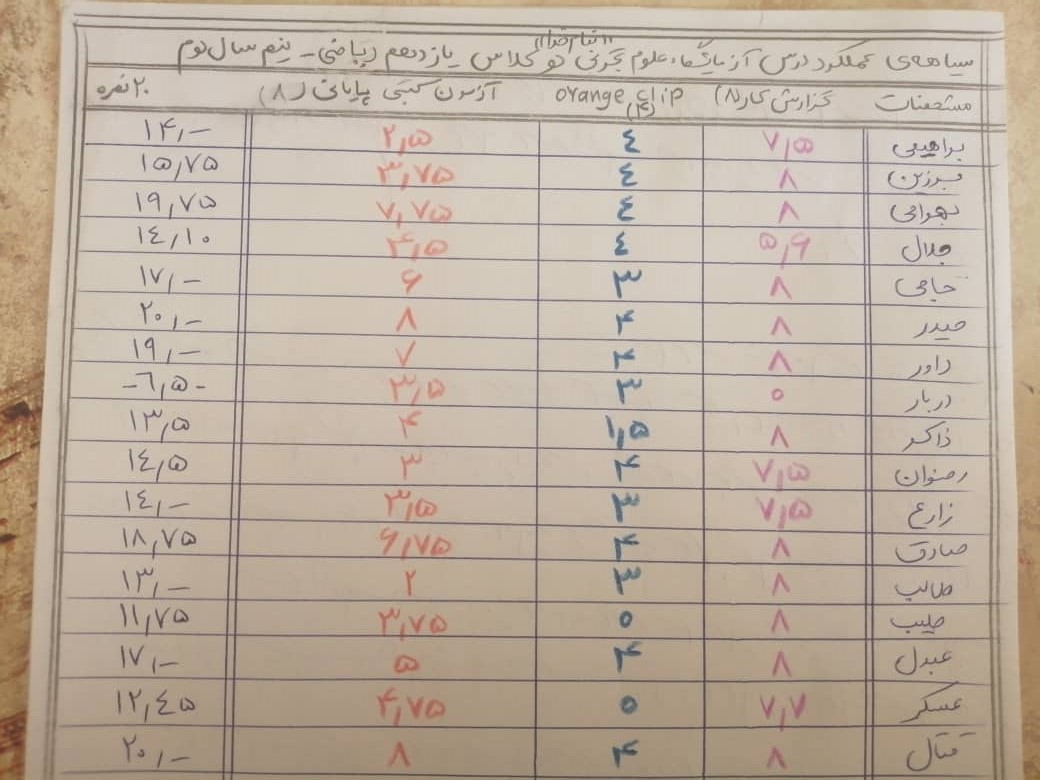 «بنام خدا»
سیاهه‌ی عملکرد درس آزمایشگاه علوم تجربی دو کلاس یازدهم ریاضی - نیم سال دوم
مشخصات گزارش کار (۸) orange clip (۴) آزمون کتبی پایانی (۸) ۲۰ نمره
براهیمی ۷,۵ ۴ ۲,۵ ۱۴,-
برزین ۸ ۴ ۳,۷۵ ۱۵,۷۵
بهرامی ۸ ۴ ۷,۷۵ ۱۹,۷۵
جلال ۵,۶ ۴ ۴,۵ ۱۴,۱۰
حاجی ۸ ۳ ۶ ۱۷,-
حیدر ۸ ۴ ۸ ۲۰,-
داور ۸ ۴ ۷ ۱۹,-
دربار ۰ ۳ ۳,۵ -۶,۵-
ذاکر ۸ ۱,۵ ۴ ۱۳,۵
رضوان ۷,۵ ۴ ۳ ۱۴,۵
زارع ۷,۵ ۳ ۳,۵ ۱۴,-
صادق ۸ ۴ ۶,۷۵ ۱۸,۷۵
طالب ۸ ۳ ۲ ۱۳,-
طیب ۸ ۰ ۳,۷۵ ۱۱,۷۵
عبدل ۸ ۴ ۵ ۱۷,-
عسکر ۷,۷ ۰ ۴,۷۵ ۱۲,۴۵
قتال ۸ ۴ ۸ ۲۰,-